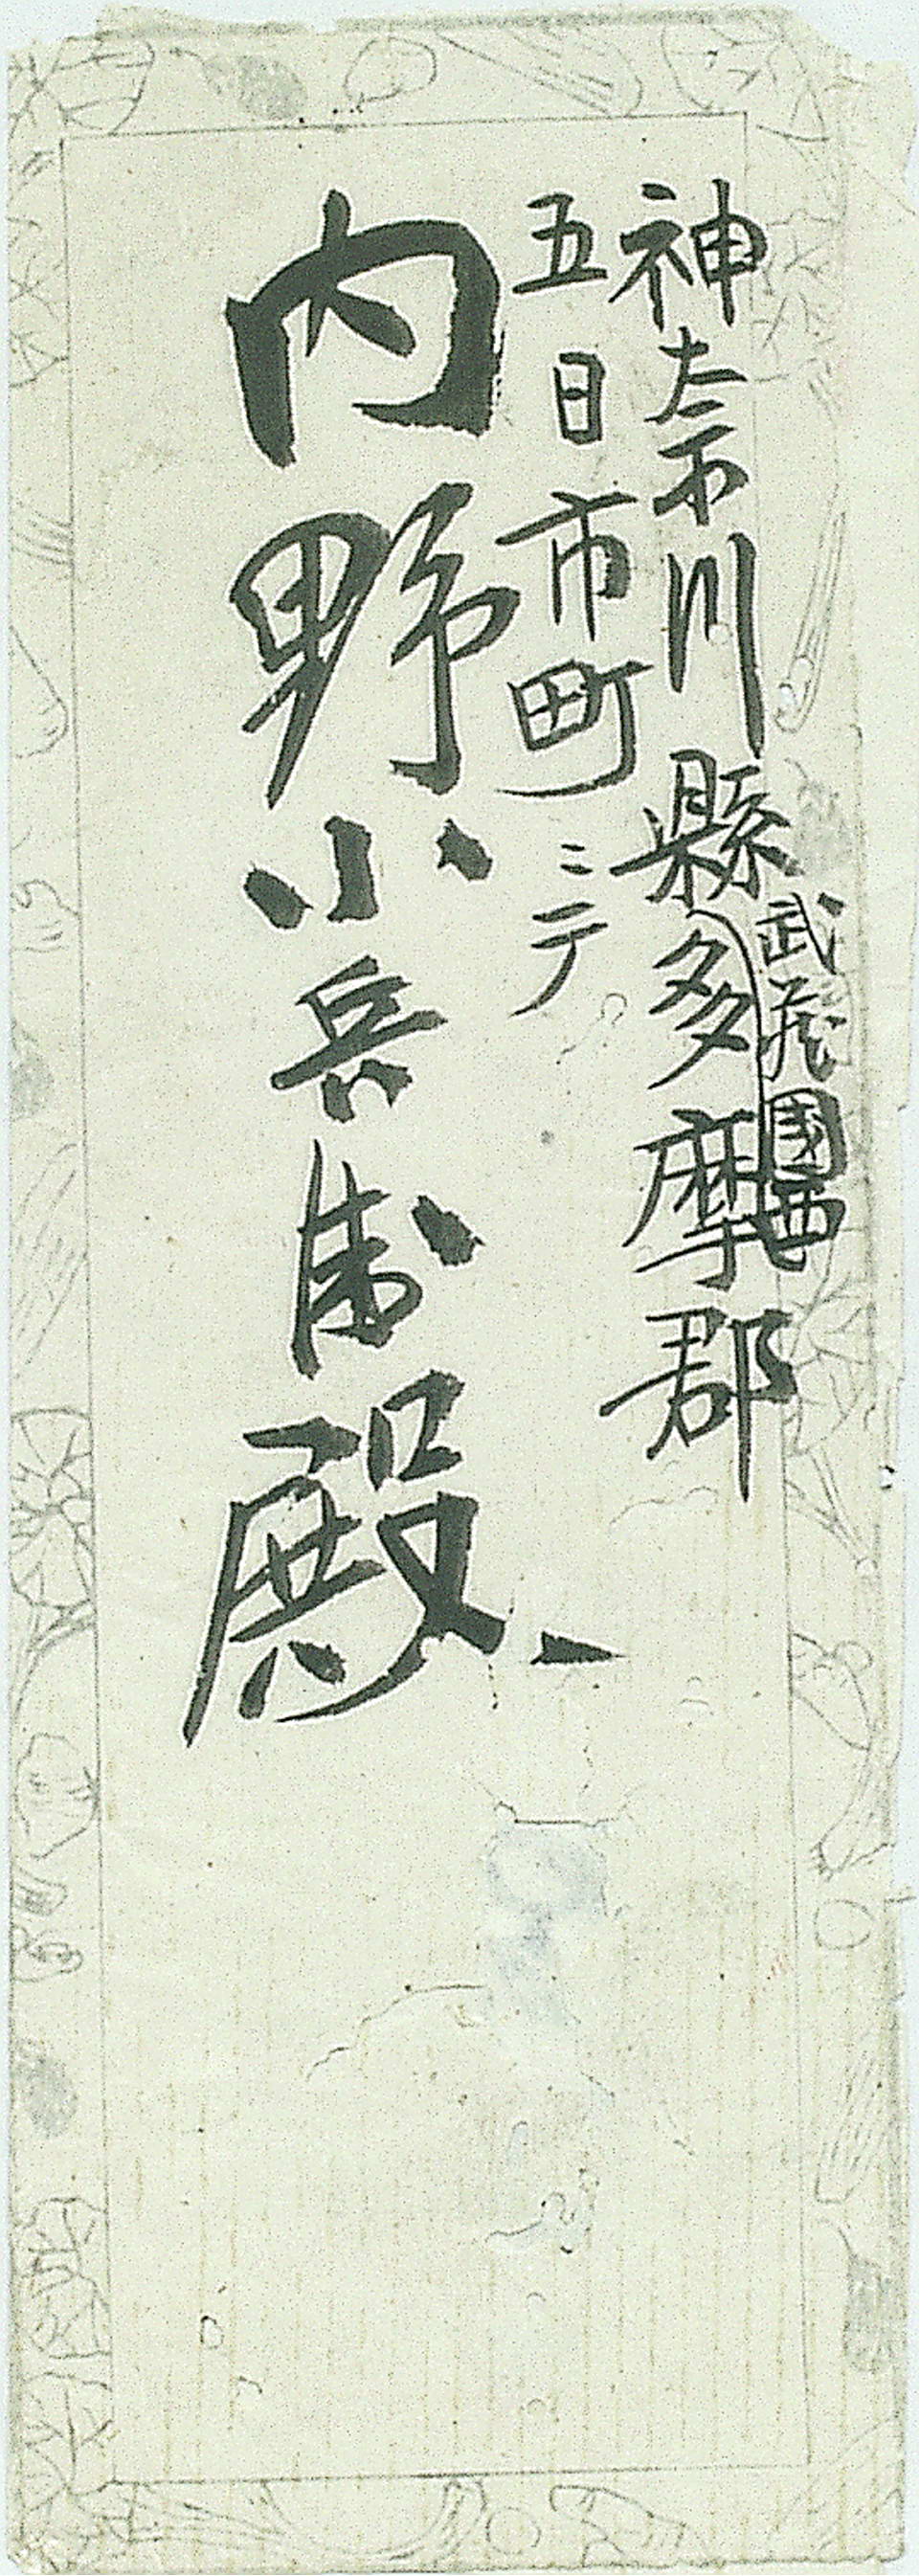 神奈川縣多摩郡
武蔵國西
五日市町ニテ
内野小兵衛殿